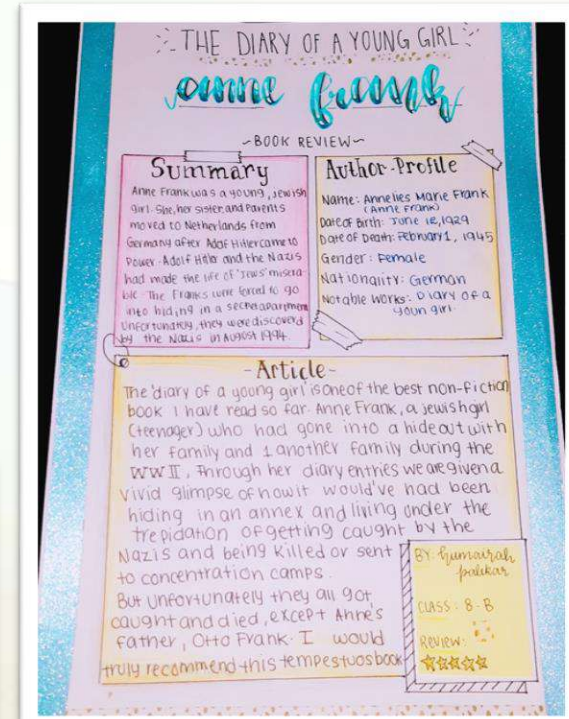 THE DIARY OF A YOUNG GIRL
anne frank
~BOOK REVIEW~
Summary
Anne Frank was a young, Jewish
girl. She, her sister, and Parents
moved to Netherlands from
Germany after Adolf Hitler came to
Power. Adolf Hitler and the Nazis
had made the life of 'Jews' misera-
ble. The Franks were forced to go
into hiding in a secret apartment
Unfortunatly, they were discoverd
by the Nazis in August 1944.
Author-Profile
Name: Annelies Marie Frank
(Anne Frank)
Date of Birth: June 12, 1929
Date of Death: February 1, 1945
Gender: Female
Nationality: German
Notable works: Diary of a
youn girl.
-Article-
The 'diary of a young girl' is one of the best non-fiction
book I have read so far. Anne Frank, a jewish girl
(teenager) who had gone into a hideout with
her family and 1 another family during the
WW II, Through her diary entries we are given a
vivid glimpse of how it would've had been
hiding in an annex and living under the
trepidation of getting caught by the
Nazis and being killed or sent
to concentration camps.
But unfortunately they all got
caught and died, except Anne's
father, Otto Frank. I would
truly recommend this tempestuos book
BY: humairah
palekar
CLASS: 8-B
REVIEW: